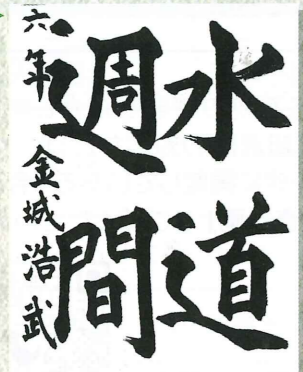 水道
週間
六年 金城浩武